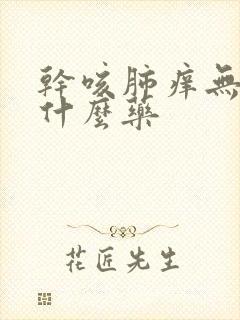 幹咳肺痒無
什麼藥
花匠先生